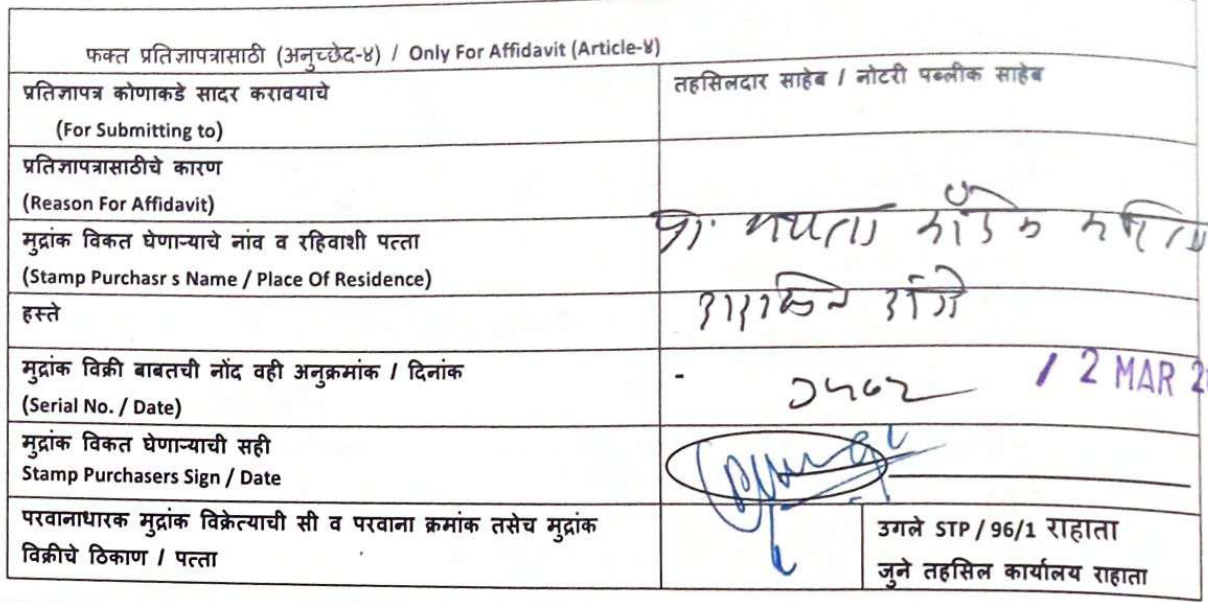 फक्त प्रतिज्ञापत्रासाठी (अनुच्छेद-४) / Only For Affidavit (Article-४)
प्रतिज्ञापत्र कोणाकडे सादर करावयाचे
(For Submitting to)
तहसिलदार साहेब / नोटरी पब्लीक साहेब
प्रतिज्ञापत्रासाठीचे कारण
(Reason For Affidavit)
मुद्रांक विकत घेणाऱ्याचे नांव व रहिवाशी पत्ता
(Stamp Purchasr s Name / Place Of Residence)
हस्ते
मुद्रांक विक्री बाबतची नोंद वही अनुक्रमांक / दिनांक
(Serial No. / Date)
2 MAR
मुद्रांक विकत घेणाऱ्याची सही
Stamp Purchasers Sign / Date
परवानाधारक मुद्रांक विक्रेत्याची सी व परवाना क्रमांक तसेच मुद्रांक
विक्रीचे ठिकाण / पत्ता
उगले STP / 96/1 राहाता
जुने तहसिल कार्यालय राहाता